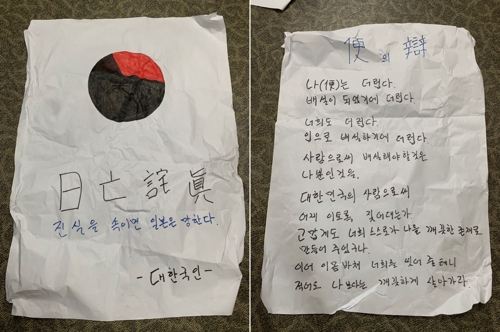 日亡詫眞
진실을 속이면 일본은 망한다.
-대한국인-
便의 辯
나(便)는 더럽다.
배설이 되었기에 더럽다.
너희도 더럽다.
입으로 배설하기에 더럽다.
사람으로써 배설해야할것은
나뿐인것을.
대한민국의 사람으로써
어찌 이토록, 짖어대는가
고맙게도 너희 스스로가 나를 깨끗한 존재로
만들어 주었구나.
이에 이몸바쳐 너희를 씻어 줄테니
적어도 나 보다는 깨끗하게 살아가라.